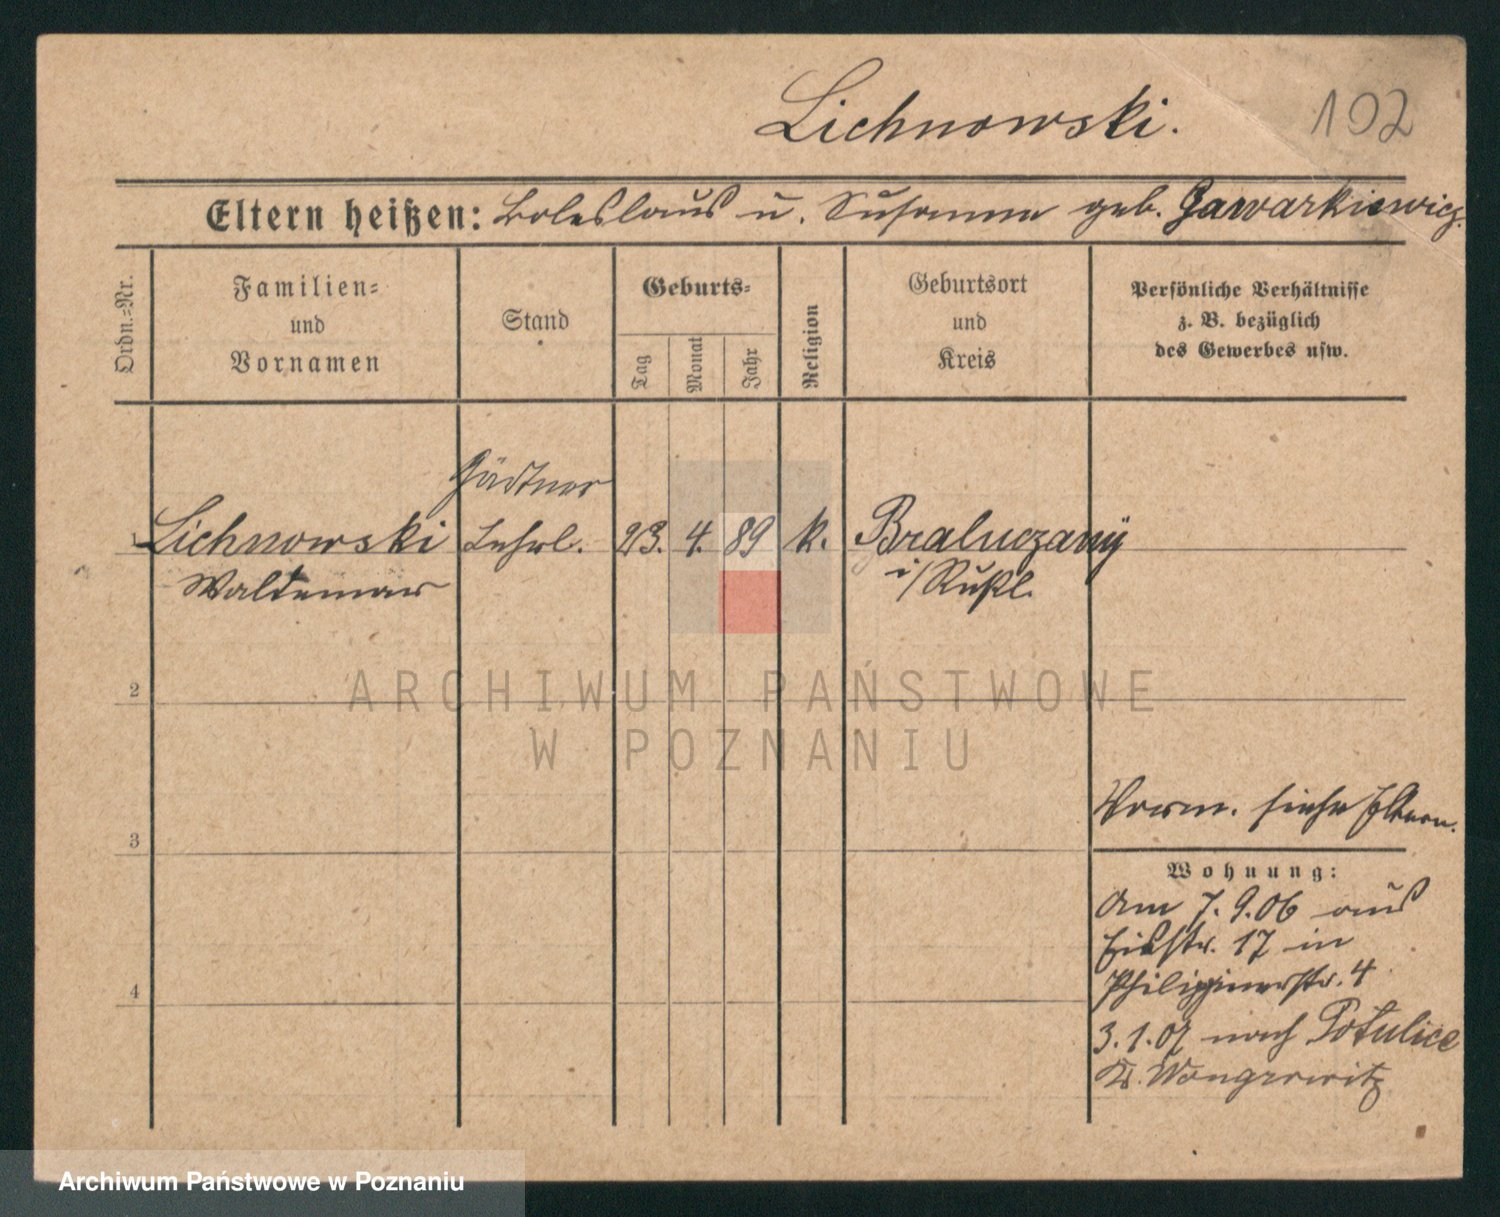 Lichnowski. 102
Eltern heißen: Boleslaus u. Susanna geb. Gawarkiewicz.
Ordn.-Nr.
Familien-
und
Vornamen
Stand
Geburts-
Tag
Monat
Jahr
Religion
Geburtsort
und
Kreis
Persönliche Verhältnisse
z. B. bezüglich
des Gewerbes usw.
Gärtner
1 Lichnowski Lehrl. 23. 4. 89 k. Braluczany
Waldemar i/Rußl.
2
ARCHIWUM PAŃSTWOWE
W POZNANIU
3
4
Vorm. siehe Eltern.
Wohnung:
Am 7.9.06 aus
Eichstr. 17 in
Philippinenstr. 4
3.1.07 nach Potulice
Kr. Wongrowitz
Archiwum Państwowe w Poznaniu